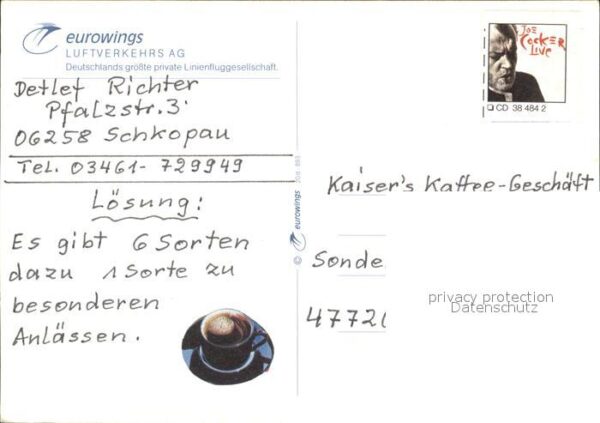 eurowings
LUFTVERKEHRS AG
Deutschlands größte private Linienfluggesellschaft.
Detlef Richter
Pfalzstr. 3
06258 Schkopau
Tel. 03461- 729949
Lösung:
Es gibt 6 Sorten
dazu 1 Sorte zu
besonderen
Anlässen.
© eurowings
JOE
COCKER
LIVE
CD 38 484 2
Kaiser's Kaffee-Geschäft
Sonde
4772
privacy protection
Datenschutz